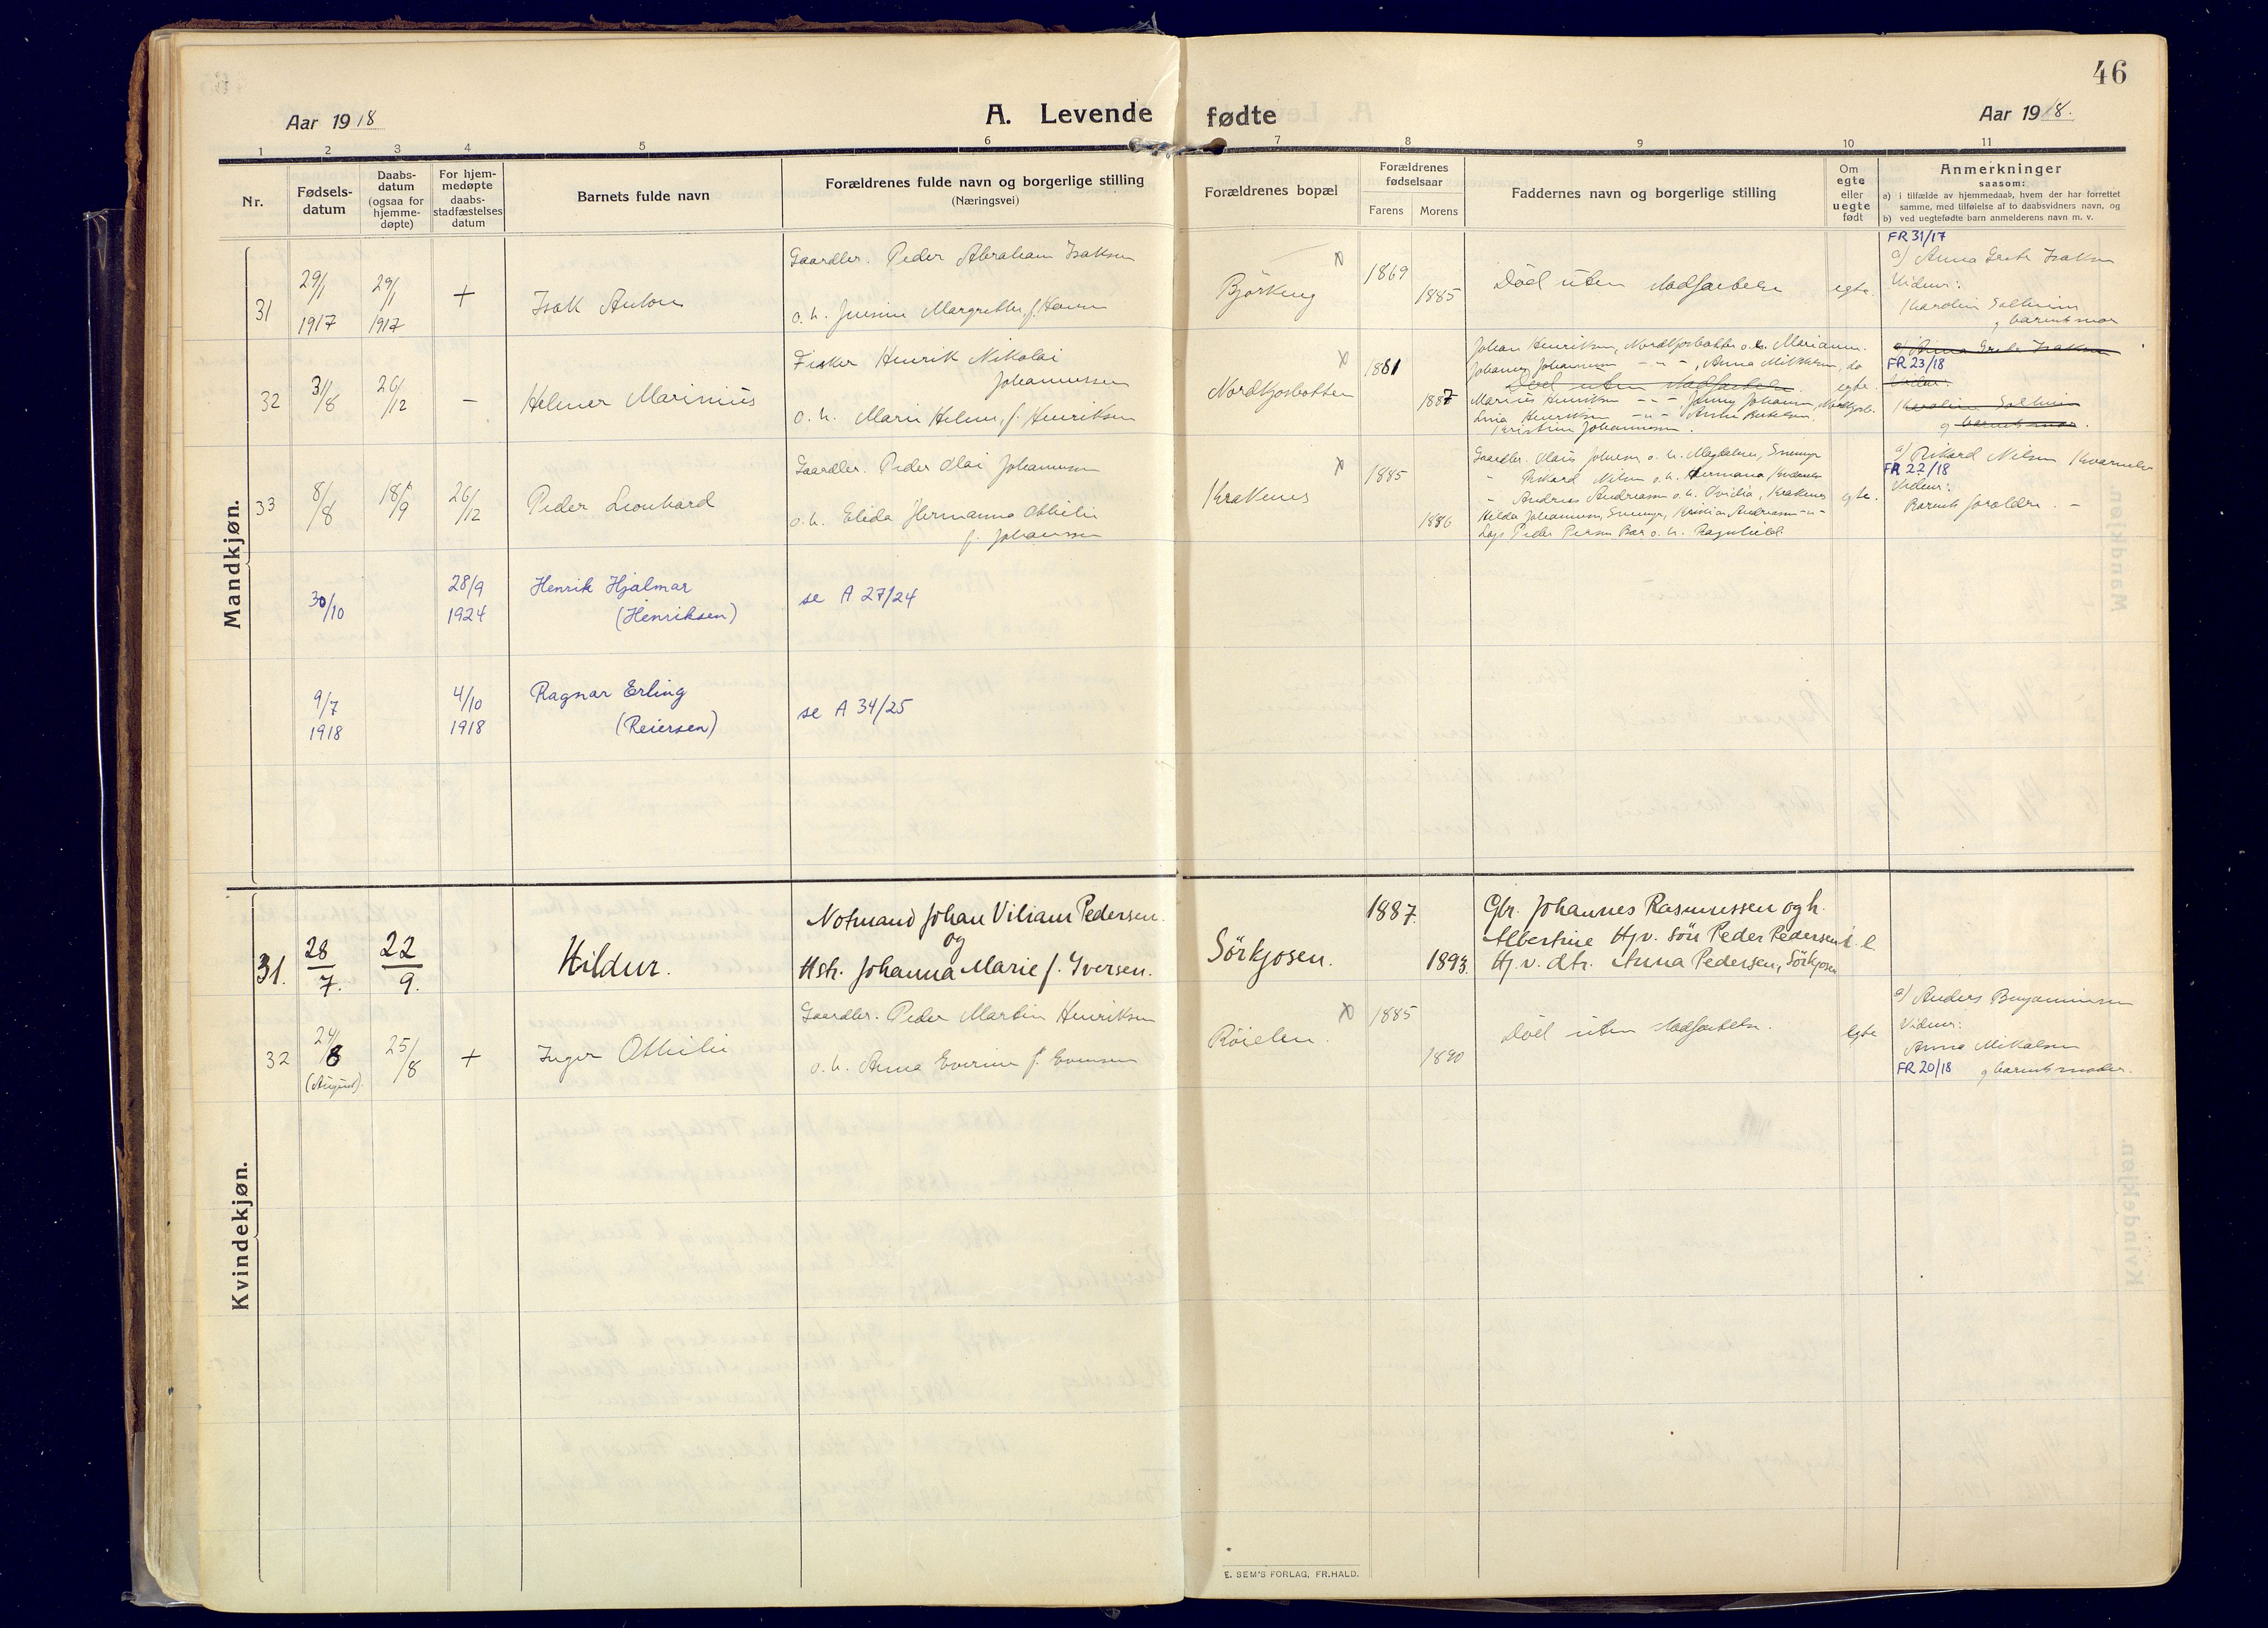 46
Aar 1918
A. Levende fødte
Aar 1918.
1 2 3 4 5 6 7 8 9 10 11
Nr.
Fødsels-
datum
Daabs-
datum
(ogsaa for
hjemme-
døpte)
For hjem-
medøpte
daabs-
stadfæstelses
datum
Barnets fulde navn
Forældrenes fulde navn og borgerlige stilling
(Næringsvei)
Forældrenes bopæl
Forældrenes
fødselsaar
Farens Morens
Faddernes navn og borgerlige stilling
Om
egte
eller
uegte
født
Anmerkninger
saasom:
a) i tilfælde av hjemmedaab, hvem der har forrettet
samme, med tilføielse af to daabsvidners navn, og
b) ved uegtefødte barn anmelderens navn m. v.
Mandkjøn.
31
29/1
1917
29/1
1917
+
Isak Anton
Gaardbr. Peder Abraham Isaksen
o. h. Margrethe, f. Hansen
Björkeng
1869
1885
Död uten stadfæstelse
egte.
FR 31/17
a) Anna Grete Isaksen
Vidner:
Karolin Solheim
og barnets mor
32
31/8
26/12
-
Helmer Marinius
Fisker Henrik Nikolai
Johannessen
o. h. Marie Helene, f. Henriksen
Nordkjosbotten
1881
1887
Johan Henriksen, Nordkjosbotten o. h. Marianne.
Johannes Johannessen -"- , Anna Mikkelsen, do
Död uten stadfæstelse.
Marius Henriksen -"-, Jenny Johansen, Nordkjosb.
Lina Henriksen -"-
Kristine Johannessen.
egte.
a) Anna Grete Isaksen
FR 23/18
Vidner:
Karoline Solheim
og barnets mor.
33
8/8
18/9
26/12
Peder Leonhard
Gaardbr. Peder Olai Johannesen
o. h. Elida Hermanna Othilie
f. Johansen
Krakenes
1885
1886
Gaardbr. Olaus Johansen o. h. Magdalene,
" Rikard Nilsen o. h. Hermana,
" Andreas Andreassen o. h. Ovidia, Krakenes
Hilda Johannesen, Kristian Andreassen -"-
Peder o. h. Ragnhild.
egte.
a) Rikard Nilsen
FR 22/18
Vidner:
Barnets foraldre. -
30/10
28/9
1924
Henrik Hjalmar
(Henriksen)
se A 27/24
9/7
1918
4/10
1918
Ragnar Erling
(Reiersen)
se A 34/25
Kvindekjøn.
31.
28/7.
22/9.
Hildur.
Notmand Johan Viliam Pedersen.
og
Hstr. Johanna Marie f. Iversen.
Sörkjosen.
1887.
1893.
Gbr. Johannes Rasmussen og h.
Albertine Hj.v. sön Peder Pedersen
Hj. v. dtr. Anna Pedersen, Sörkjosen
e
32
24/8
(August).
25/8
+
Inger Othilie
Gaardbr. Peder Martin Henriksen
o. h. Anna Everine f. Evensen
Röielen.
1885
1890
Död uten stadfæstelse.
egte
a) Anders Benjaminsen
Vidner:
Anna Mikalsen
FR 20/18 og barnets moder.
E. SEM'S FORLAG, FR.HALD.